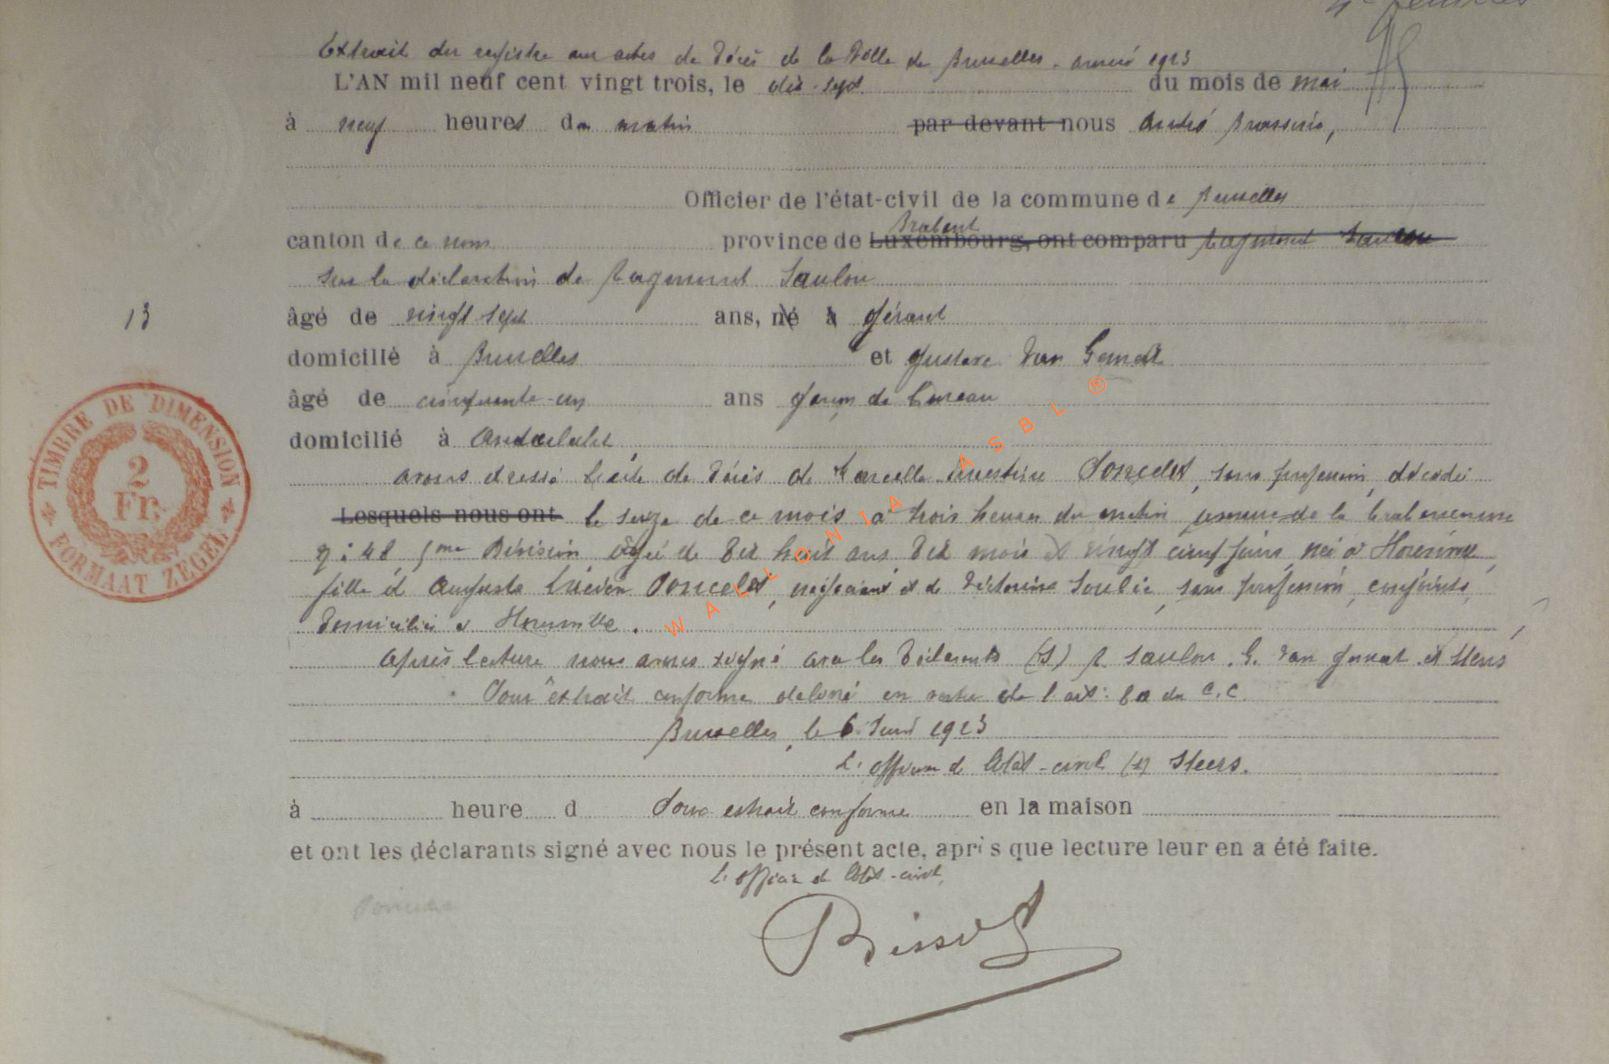 Extrait du registre aux actes de décès de la Ville de Bruxelles - année 1923
L'AN mil neuf cent vingt trois, le dix-sept du mois de mai
à neuf heures du matin par devant nous André
Officier de l'état-civil de la commune de Bruxelles
Brabant
canton de ce nom province de Luxembourg, ont comparu Raymond Saulou
sur la déclaration de Raymond Saulou
13
âgé de vingt sept ans, né à gérant
domicilié à Bruxelles et Gustave Van Gemat
âgé de cinquante-un ans garçon de bureau
domicilié à Anderlecht,
avons dressé l'acte de décès de Marcelle Poncelet, sans profession, décédée
Lesquels nous ont le seize de ce mois à trois heures du matin avenue de la
n: 48 5me Division âgée de Dix huit ans Dix mois et vingt cinq jours, née à
fille d'Auguste Lucien Poncelet, négociant et de Victorine, sans profession, conjoints,
domiciliés à
Après lecture nous avons signé avec les Déclarants (S) R. Saulou. G. Van Gemat. et Steens
Pour extrait conforme délivré en vertu de l'art. 80 du C.C.
Bruxelles, le 6 Juin 1923
L'officier de l'état-civil (s) Steens.
à heure d Pour extrait conforme en la maison
et ont les déclarants signé avec nous le présent acte, apr s que lecture leur en a été faite.
L'officier de l'état-civil,
TIMBRE DE DIMENSION
2
Fr.
FORMAAT ZEGEL
WALLONIA ASBL ®